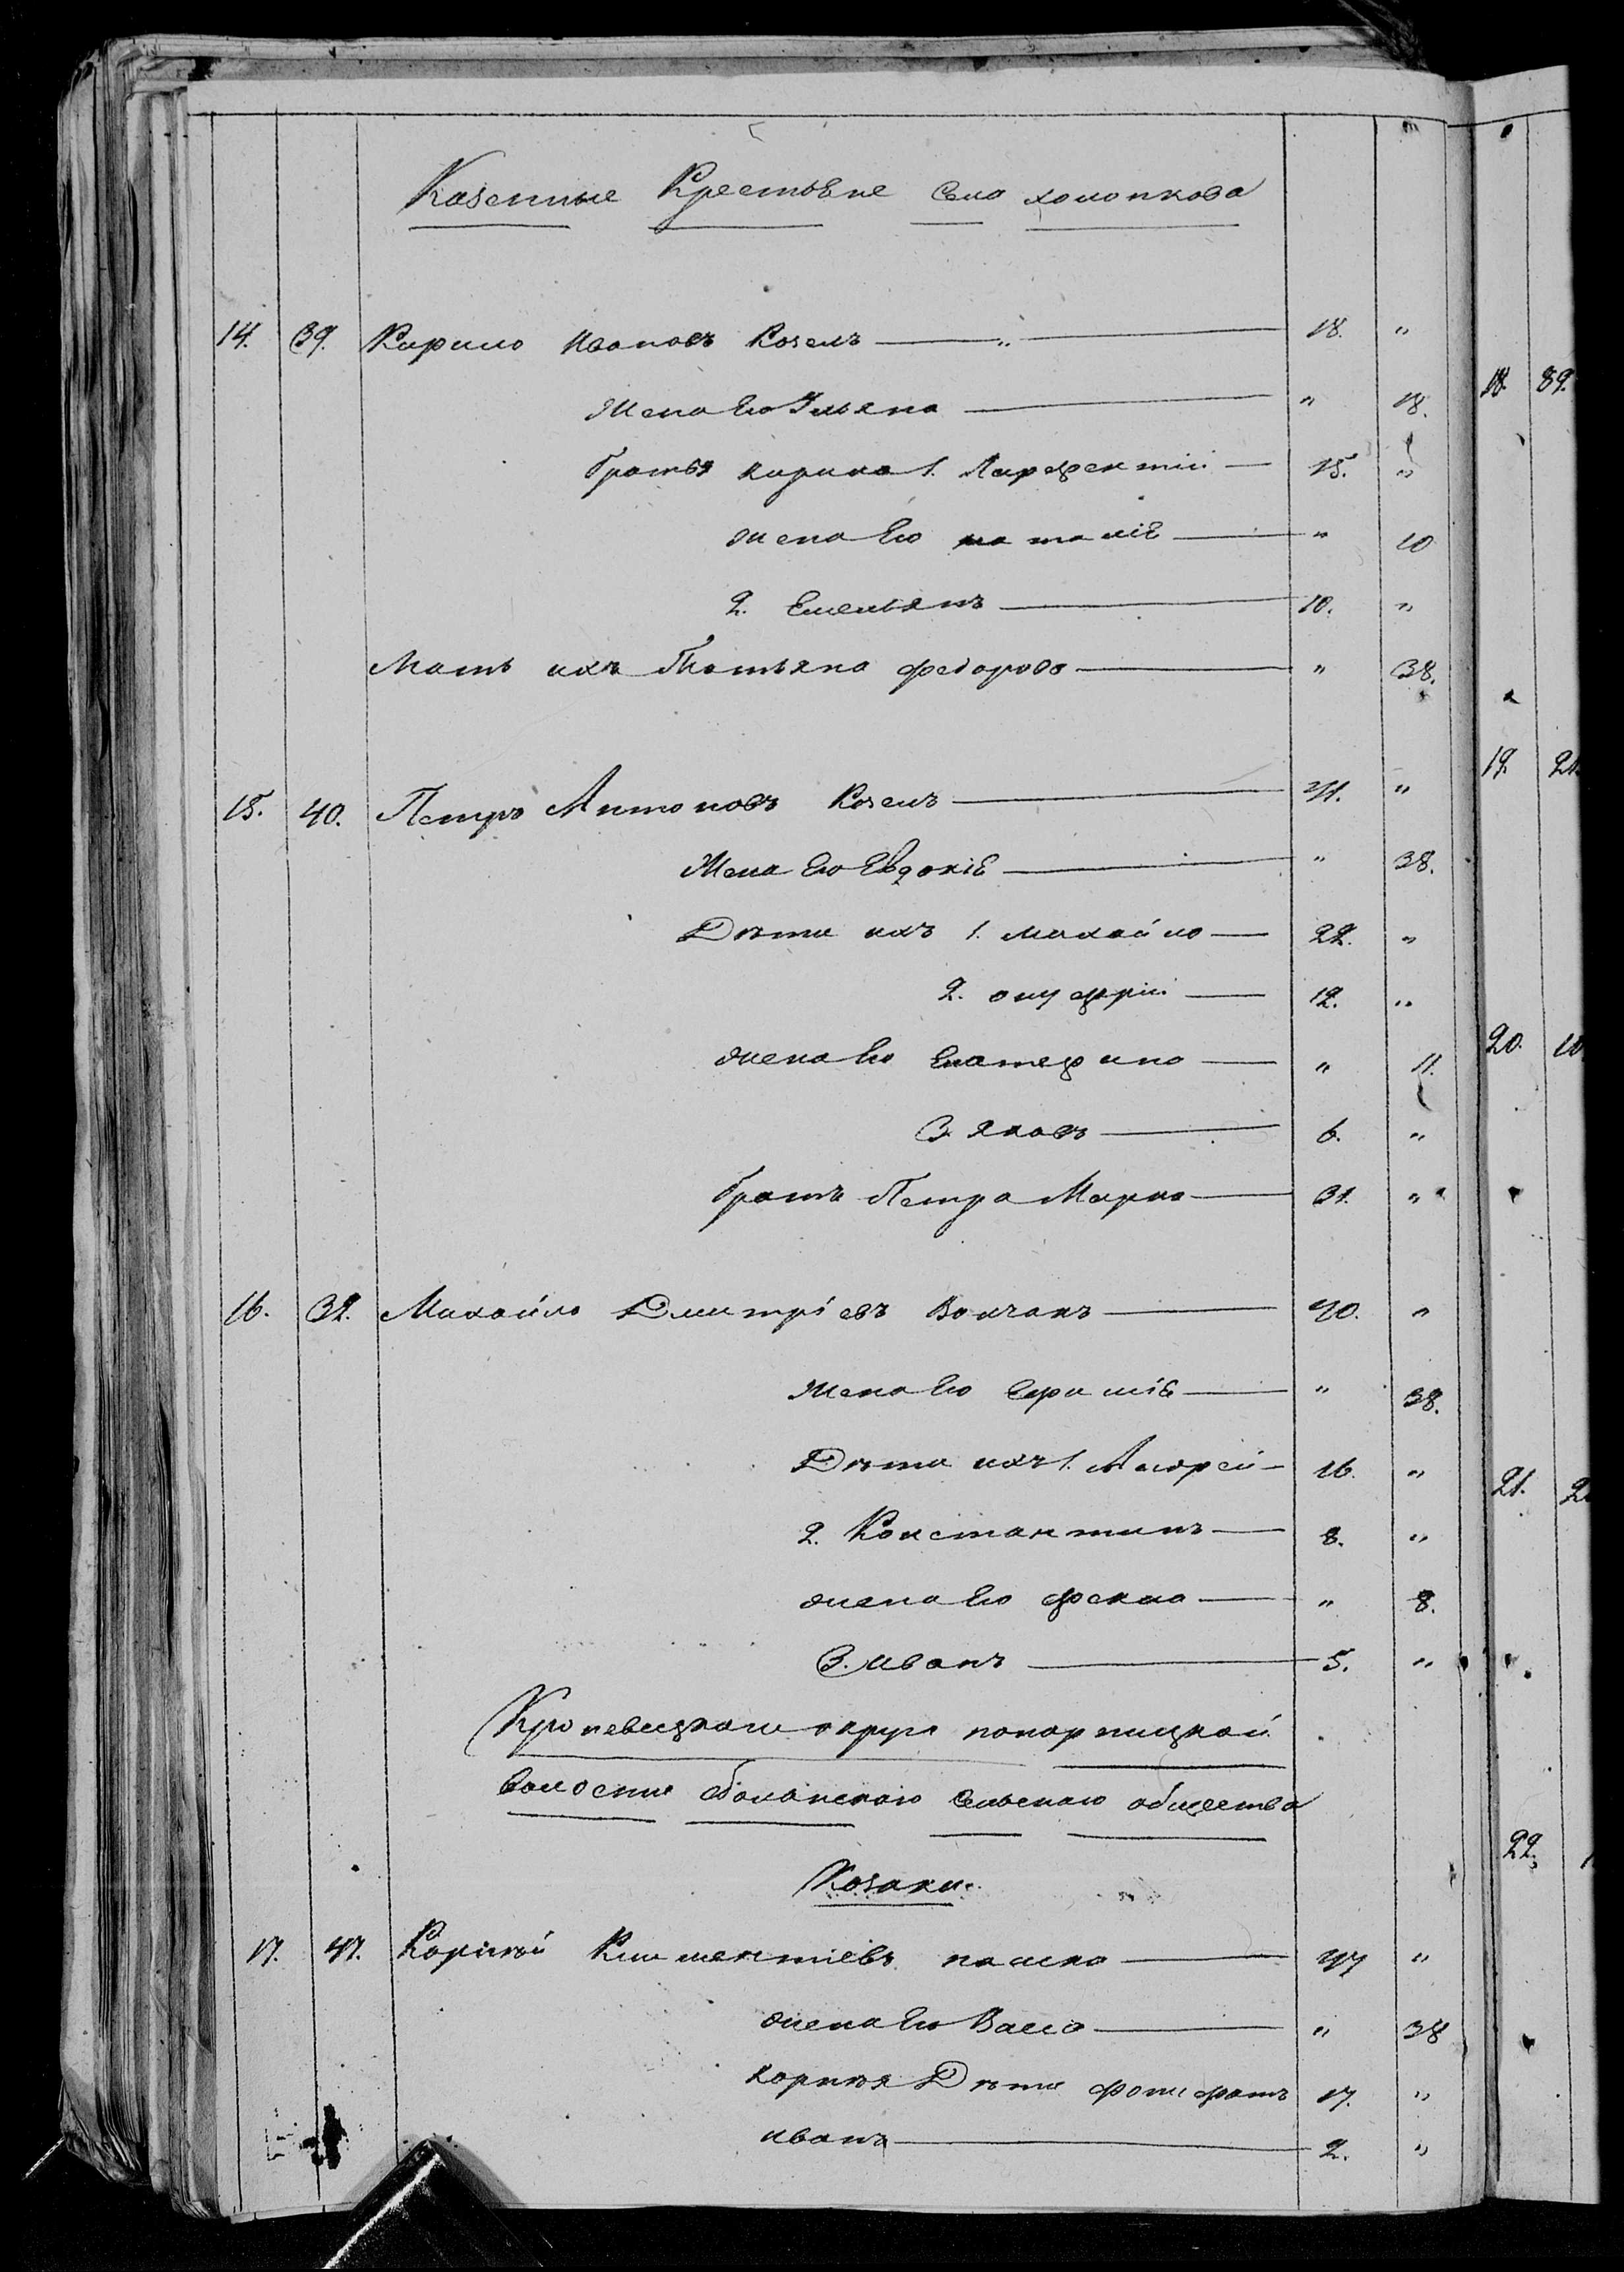 Казенные Крестьяне Села холопкова
14. 39. Кирило Ивановъ Козелъ — 18. "
Жена Его Ульяна — " 18.
братья кирила 1. Лаврентий — 15. "
жена Его наталiя — " 10
2. Емельянъ — 10. "
Мать ихъ Татьяна федорова — " 38.
15. 40. Петръ Антоновъ Козелъ — 41. "
Жена Его Евдокiя — " 38.
Дѣти ихъ 1. михайло — 22. "
2. онуфрiй — 12. "
жена Его Екатерина — " 11.
3. яковъ — 6. "
братъ Петра Марко — 31. "
16. 32. Михайло Дмитрiевъ Волчакъ — 40. "
Жена Его — " 38.
Дѣти ихъ 1. Андрей — 16. "
2. Константинъ — 8. "
жена Его фекла — " 8.
3. иванъ — 5. "
Кролевецкаго округа понорницкой
волости оболонскаго сельского общества
Козаки.
17. 47. Корнѣй Климентiевъ — 47 "
жена Его Васса — " 38
корнѣя Дѣти — 17. "
иванъ — 2. "
18. 89.
19. 21.
20. 10
21.
22.